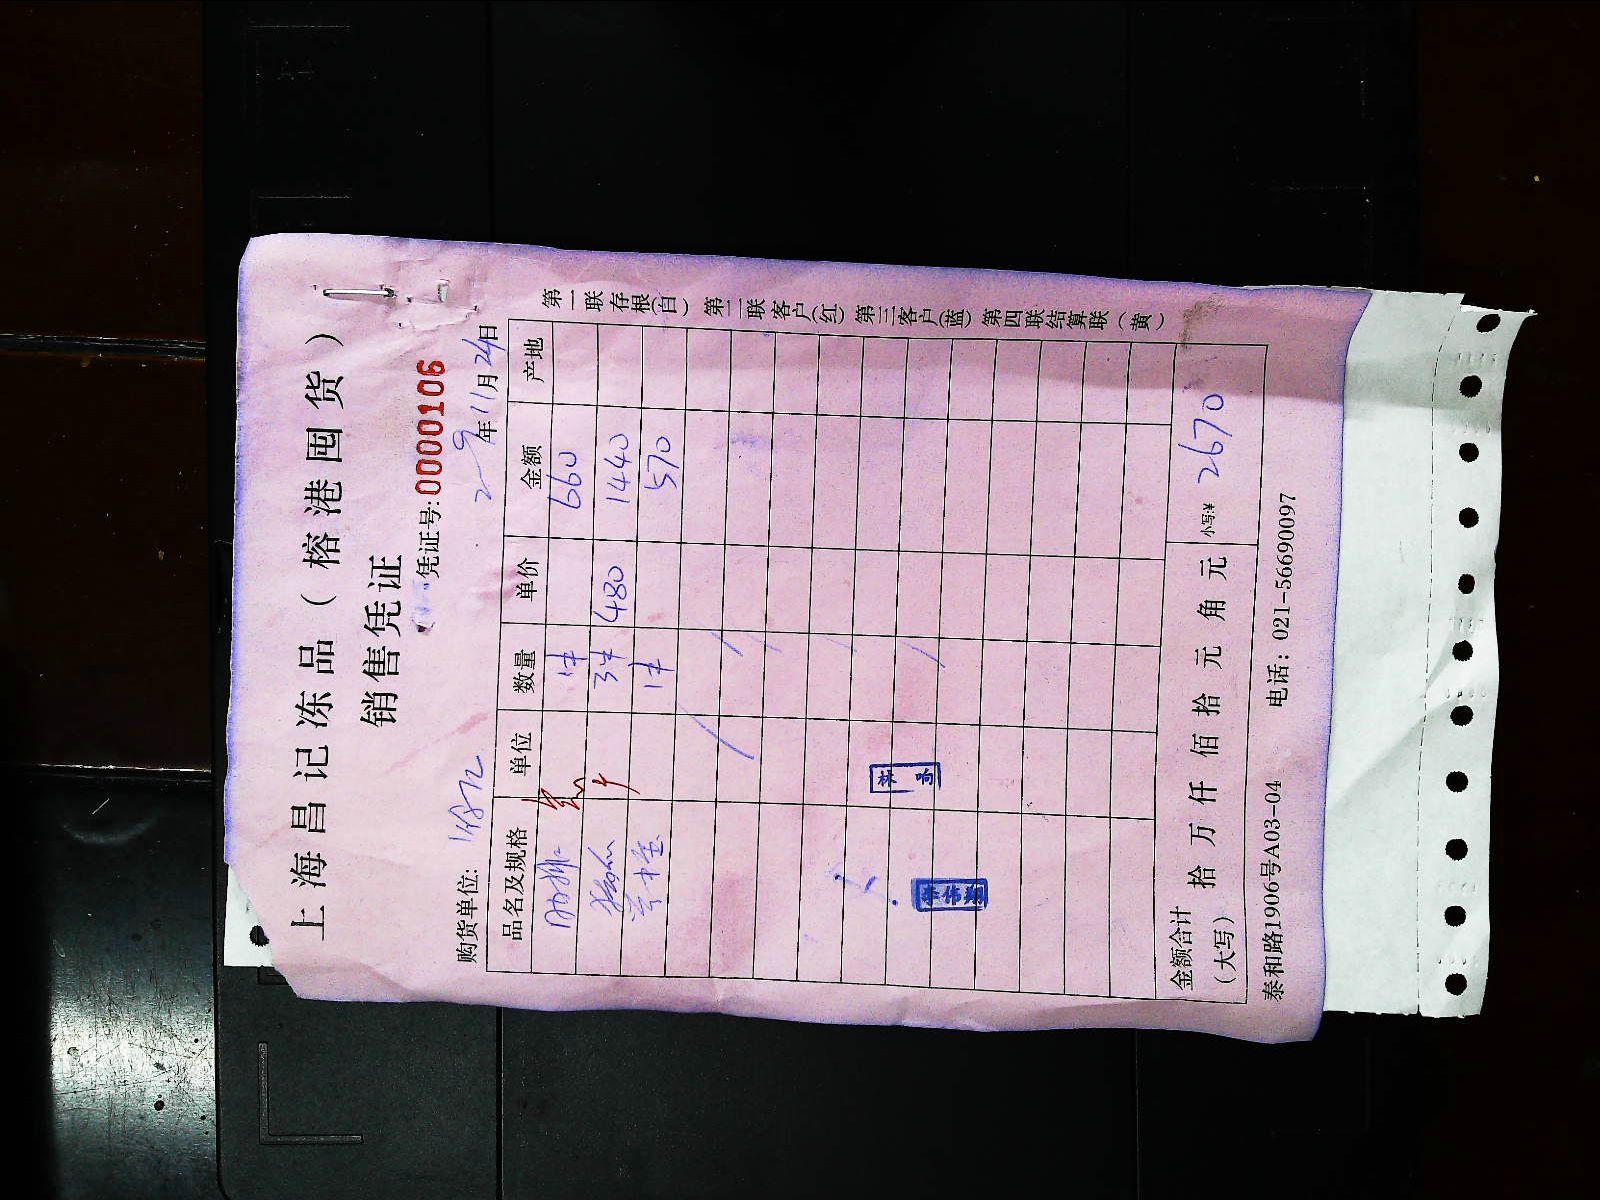 上海昌记冻品（榕港囤货）
销售凭证
凭证号:0000106
购货单位: 年11月24日
品名及规格 单位 数量 单价 金额 产地
1件 660
3件 480 1440
1件 570
金额合计（大写） 拾 万 仟 佰 拾 元 角 元 小写:¥ 2670
泰和路1906号A03-04 电话：021-56690097
第一联存根(白) 第二联客户(红) 第三客户(蓝) 第四联结算联（黄）